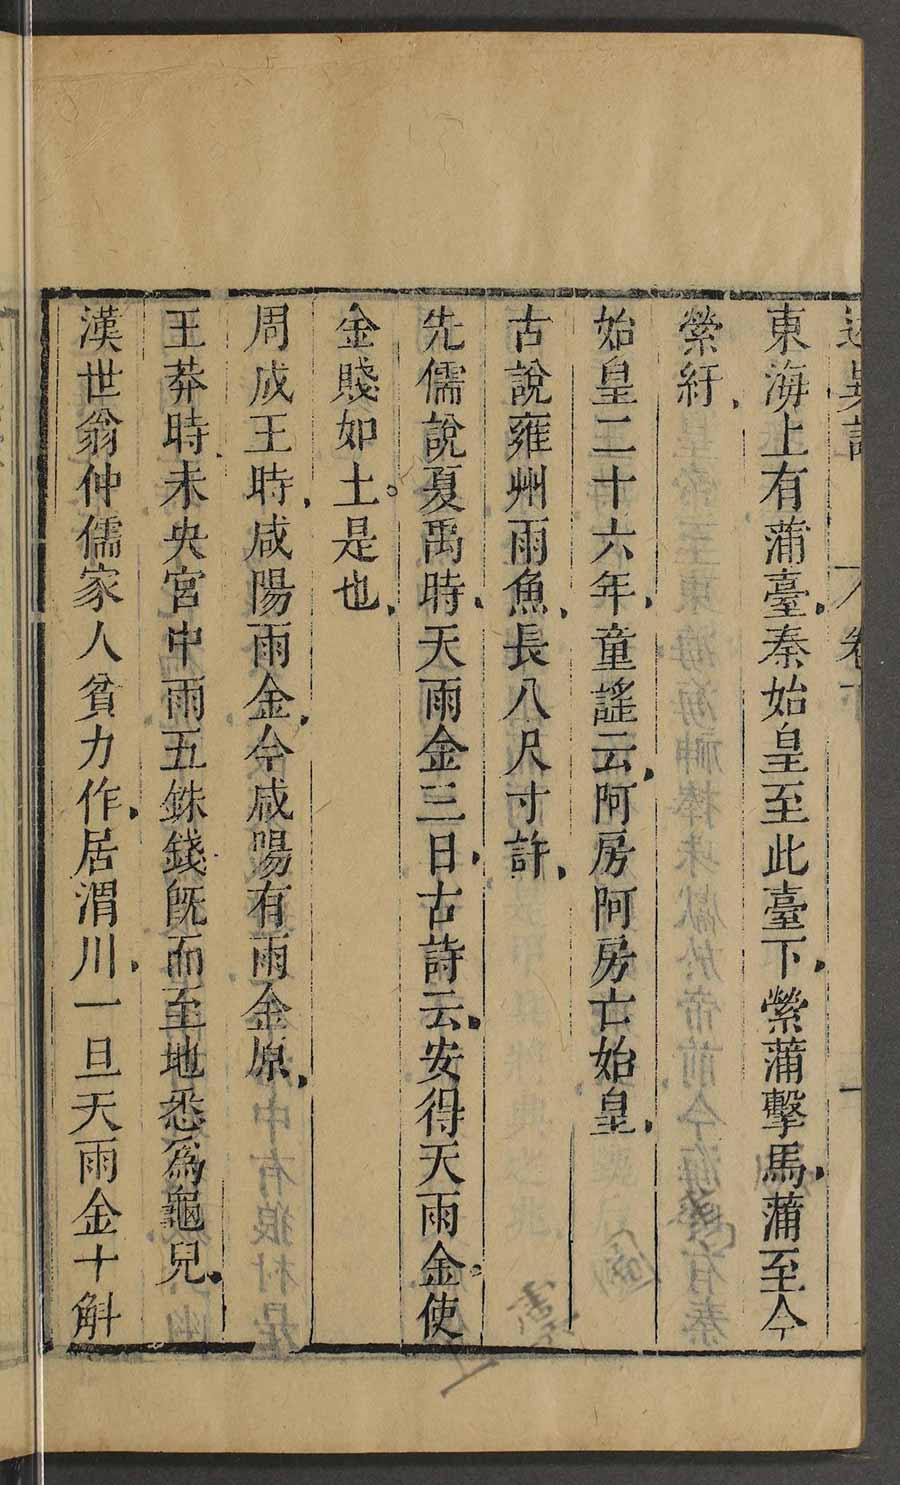 述異記 卷下 一
東海上有蒲臺秦始皇至此臺下縈蒲擊馬蒲至今
縈紆
始皇二十六年童謠云阿房阿房亡始皇
古說雍州雨魚長八尺寸許
先儒說夏禹時天雨金三日古詩云安得天雨金使
金賤如土是也
周成王時咸陽雨金今咸陽有雨金原
王莽時未央宮中雨五銖錢旣而至地悉爲龜兒
漢世翁仲儒家人貧力作居渭川一旦天雨金十斛